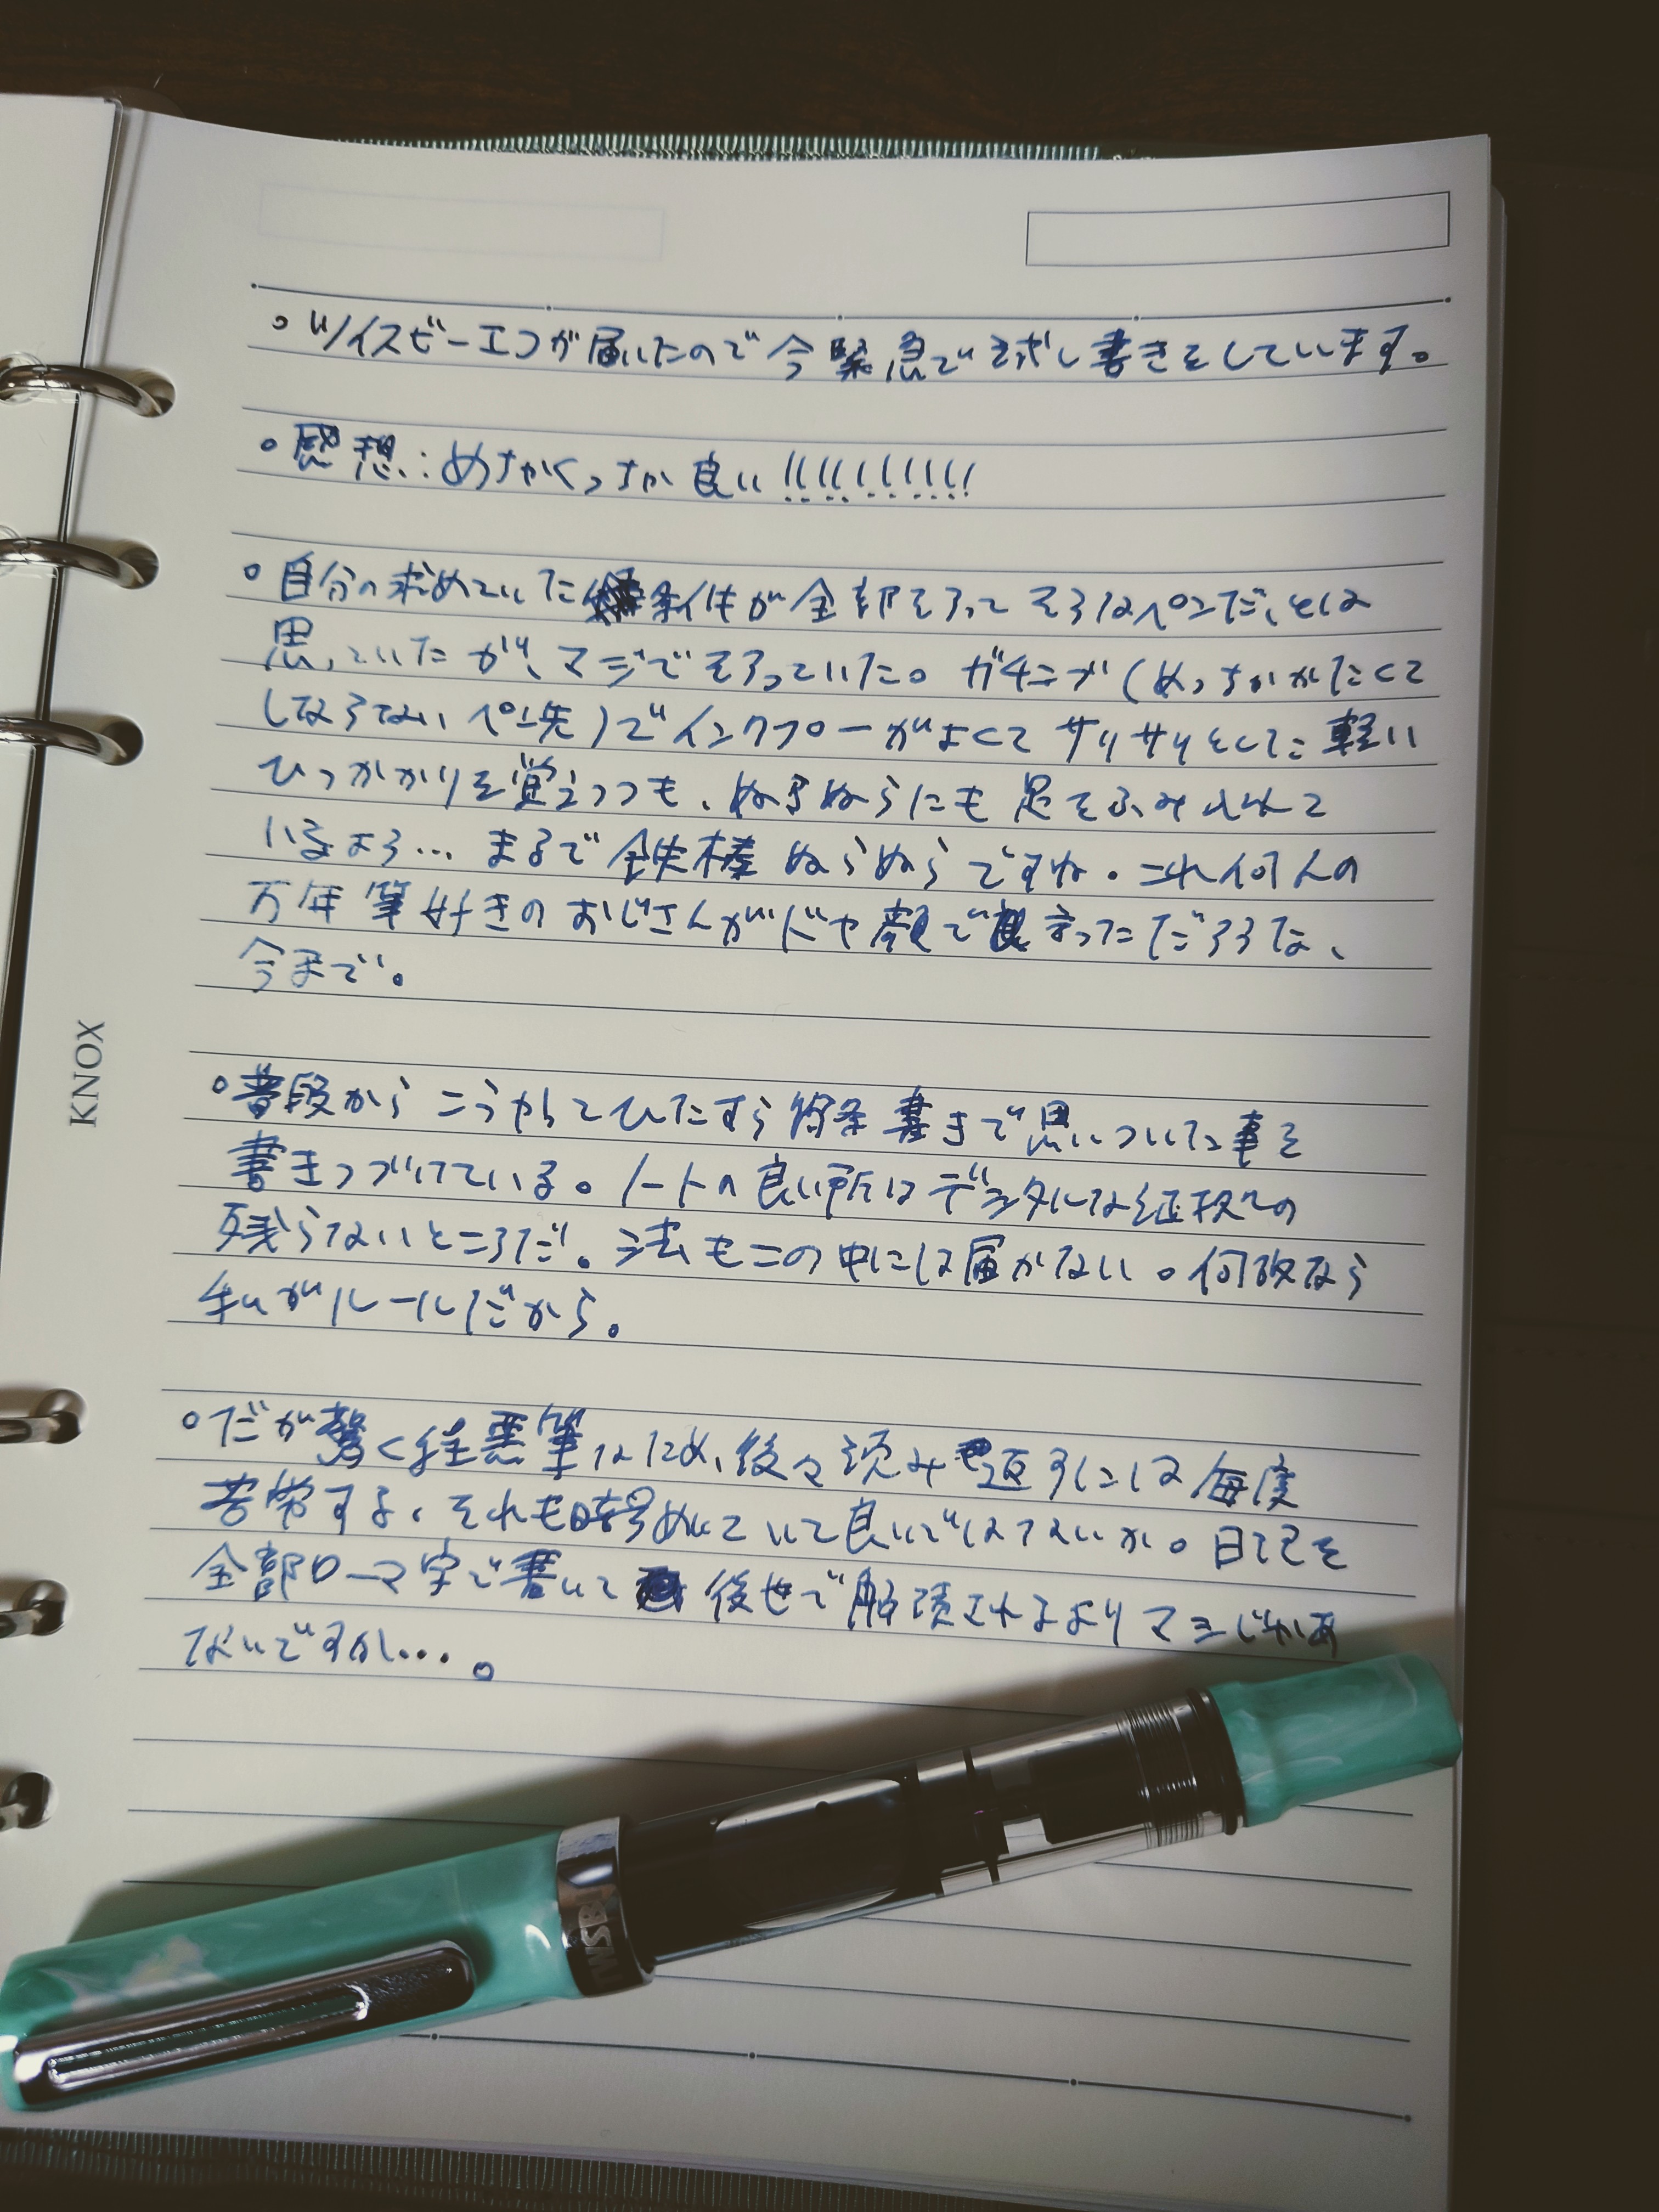 。ツイスビーエコが届いたので今緊急で試し書きをしています。
。感想:めちゃくっちゃ良い!!!!!!!!!!
。自分の求めていた条件が全部そろってそうなペンだ、とは
思っていたが、マジでそろっていた。ガチニブ(めっちゃかたくて
しならないペン先)でインクフローがよくてサリサリとした軽い
ひっかかりを覚えつつも、ぬらぬらにも足をふみ入れて
いるよう…まるで鉄棒ぬらぬらですね。これ何人の
万年筆好きのおじさんがドヤ顔で言っただろうな、
今まで。
。普段からこうやってひたすら箇条書きで思いついた事を
書きつづけている。ノートの良い所はデジタルな証拠の
残らないところだ。法もこの中には届かない。何故なら
私がルールだから。
。だが驚く程悪筆なため、後々読み返すには毎度
苦労する。それも暗号めいていて良いではないか。日記を
全部ローマ字で書いて後世で解読されるよりマシじゃあ
ないですか…。
KNOX
TWSBI